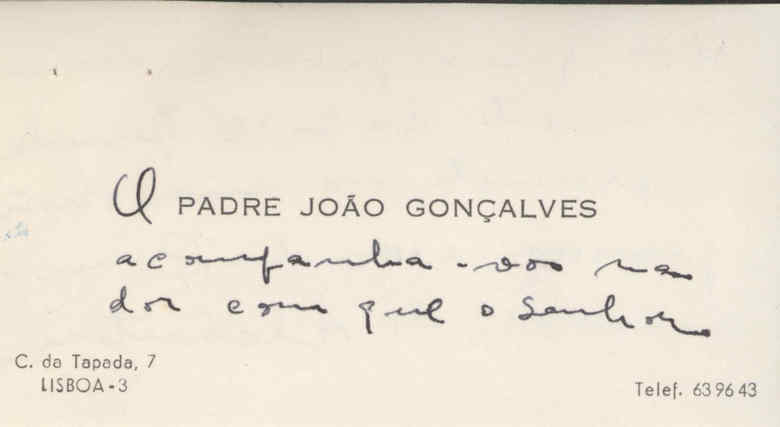 O PADRE JOÃO GONÇALVES
acompanha-vos na
dor com que o Senhor
C. da Tapada, 7
LISBOA-3
Telef. 63 96 43